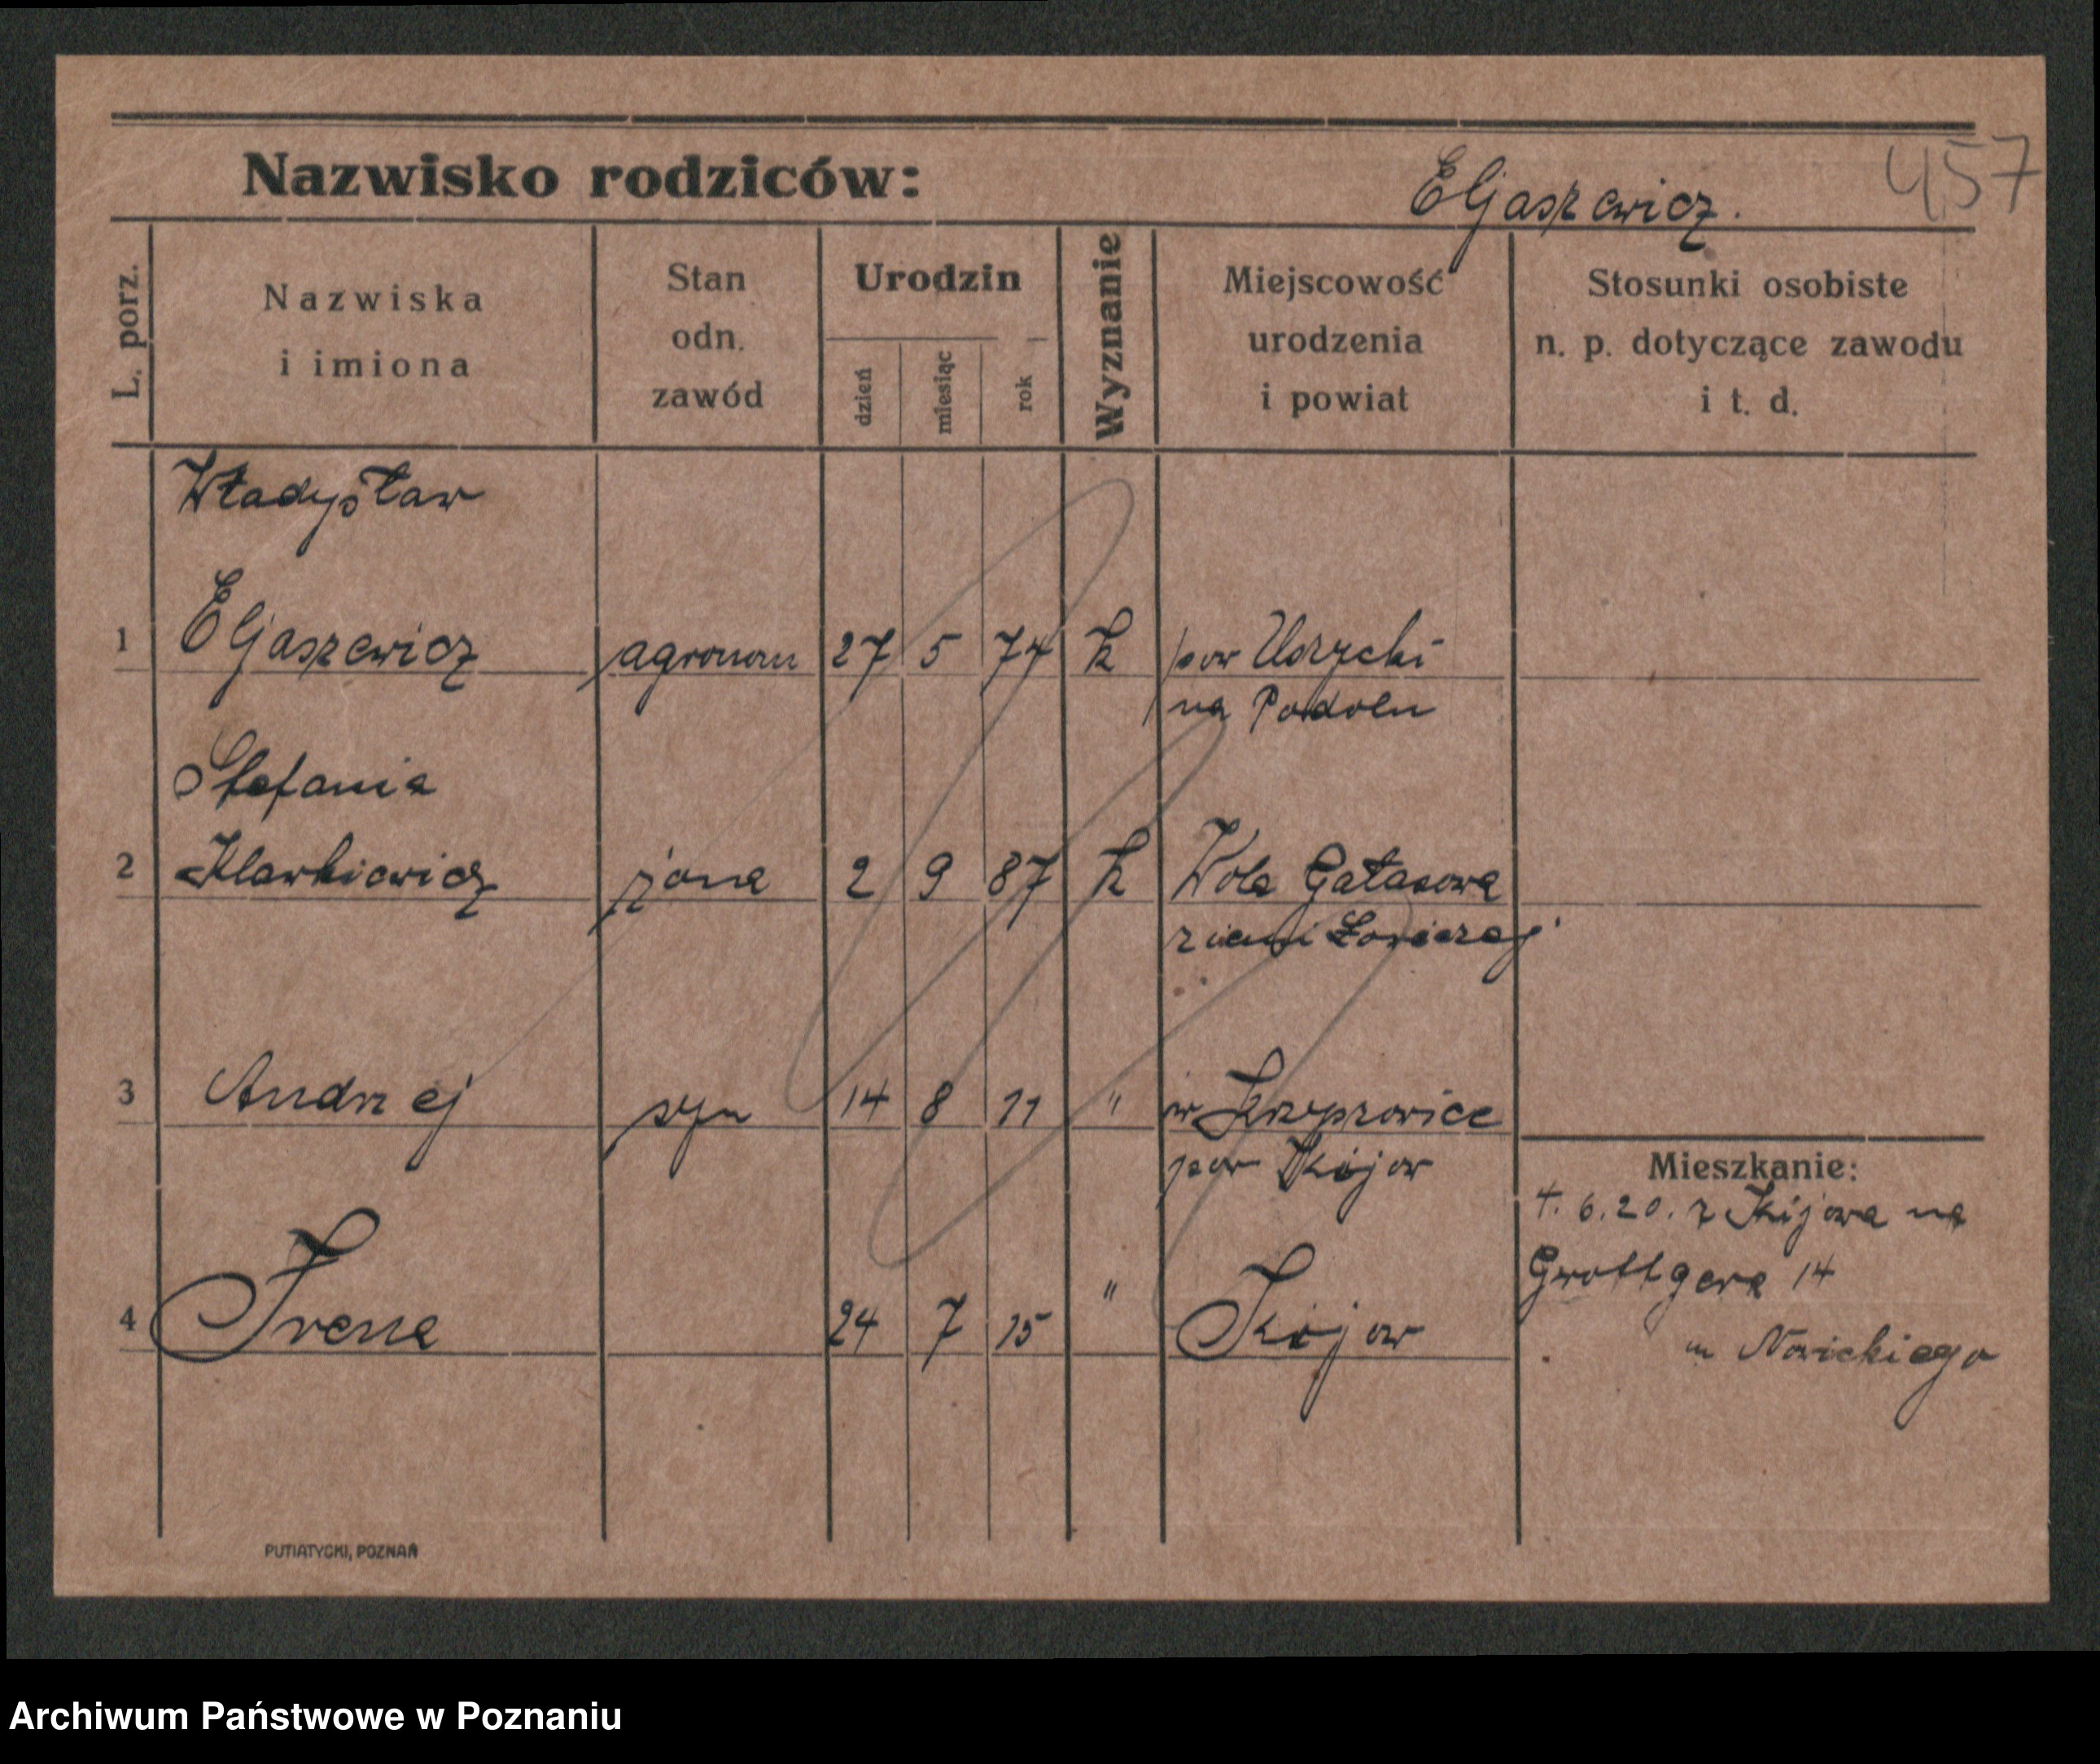 457
Nazwisko rodziców: Eljaszewicz.
L. porz. Nazwiska i imiona Stan odn. zawód Urodzin dzień miesiąc rok Wyznanie Miejscowość urodzenia i powiat Stosunki osobiste n. p. dotyczące zawodu i t. d.
Władysław
1 Eljaszewicz agronom 27 5 74 k pow Uszycki
na Podolu
Stefania
2 żona 2 9 87 k Wola Gałasowa
ziemi
3 Andrzej syn 14 8 11 " w
pow Kijow
Mieszkanie:
4. 6. 20. z Kijowa na
Grottgera 14
4 Irena 24 7 15 " Kijow
u Nowickiego
PUTIATYCKI, POZNAŃ
Archiwum Państwowe w Poznaniu